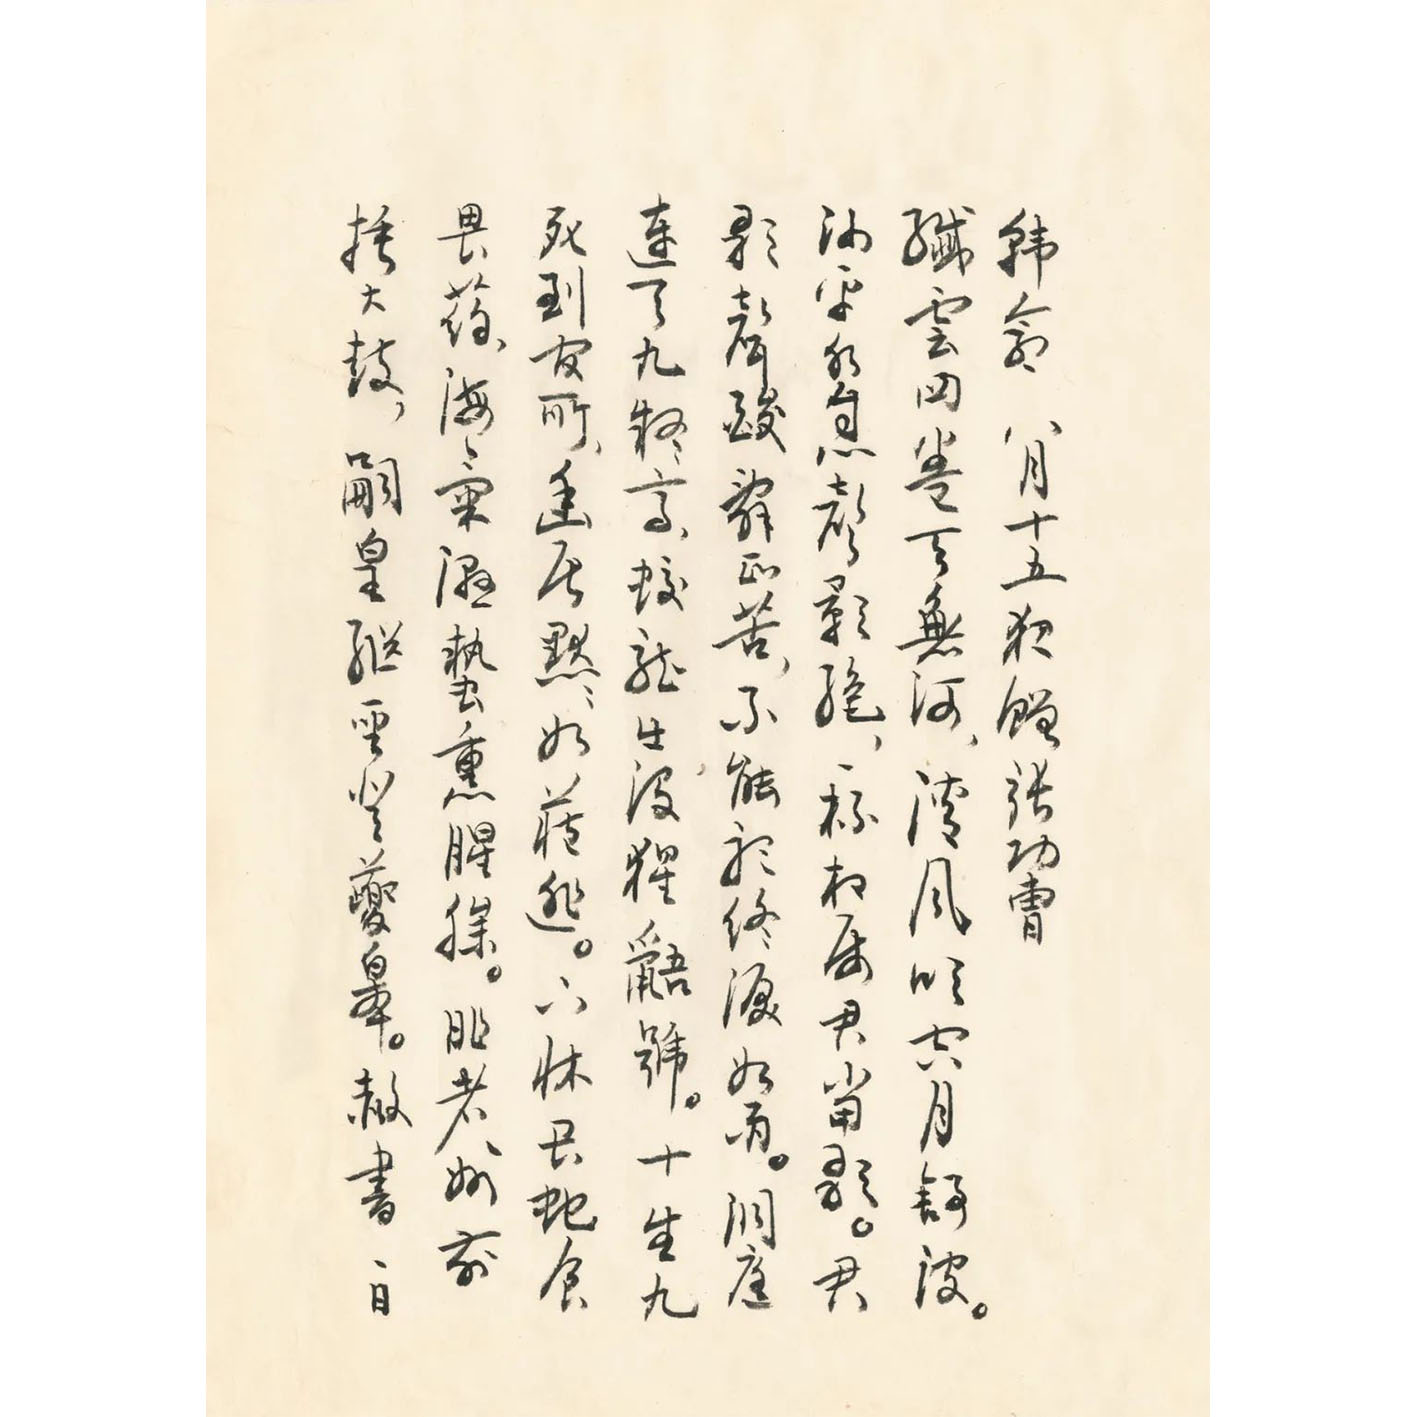 韓愈 八月十五夜贈張功曹
纖雲四卷天無河，清風吹空月舒波。
沙平水息聲影絕，一杯相属君當歌。君
歌聲酸辭正苦，不能聽終淚如雨。洞庭
連天九疑高，蛟龍出沒猩鼯號。十生九
死到官所，幽居默默如藏逃。下牀畏蛇食
畏藥，海氣濕蟄熏腥臊。昨者州前
捶大鼓，嗣皇繼聖登夔皋。赦書一日